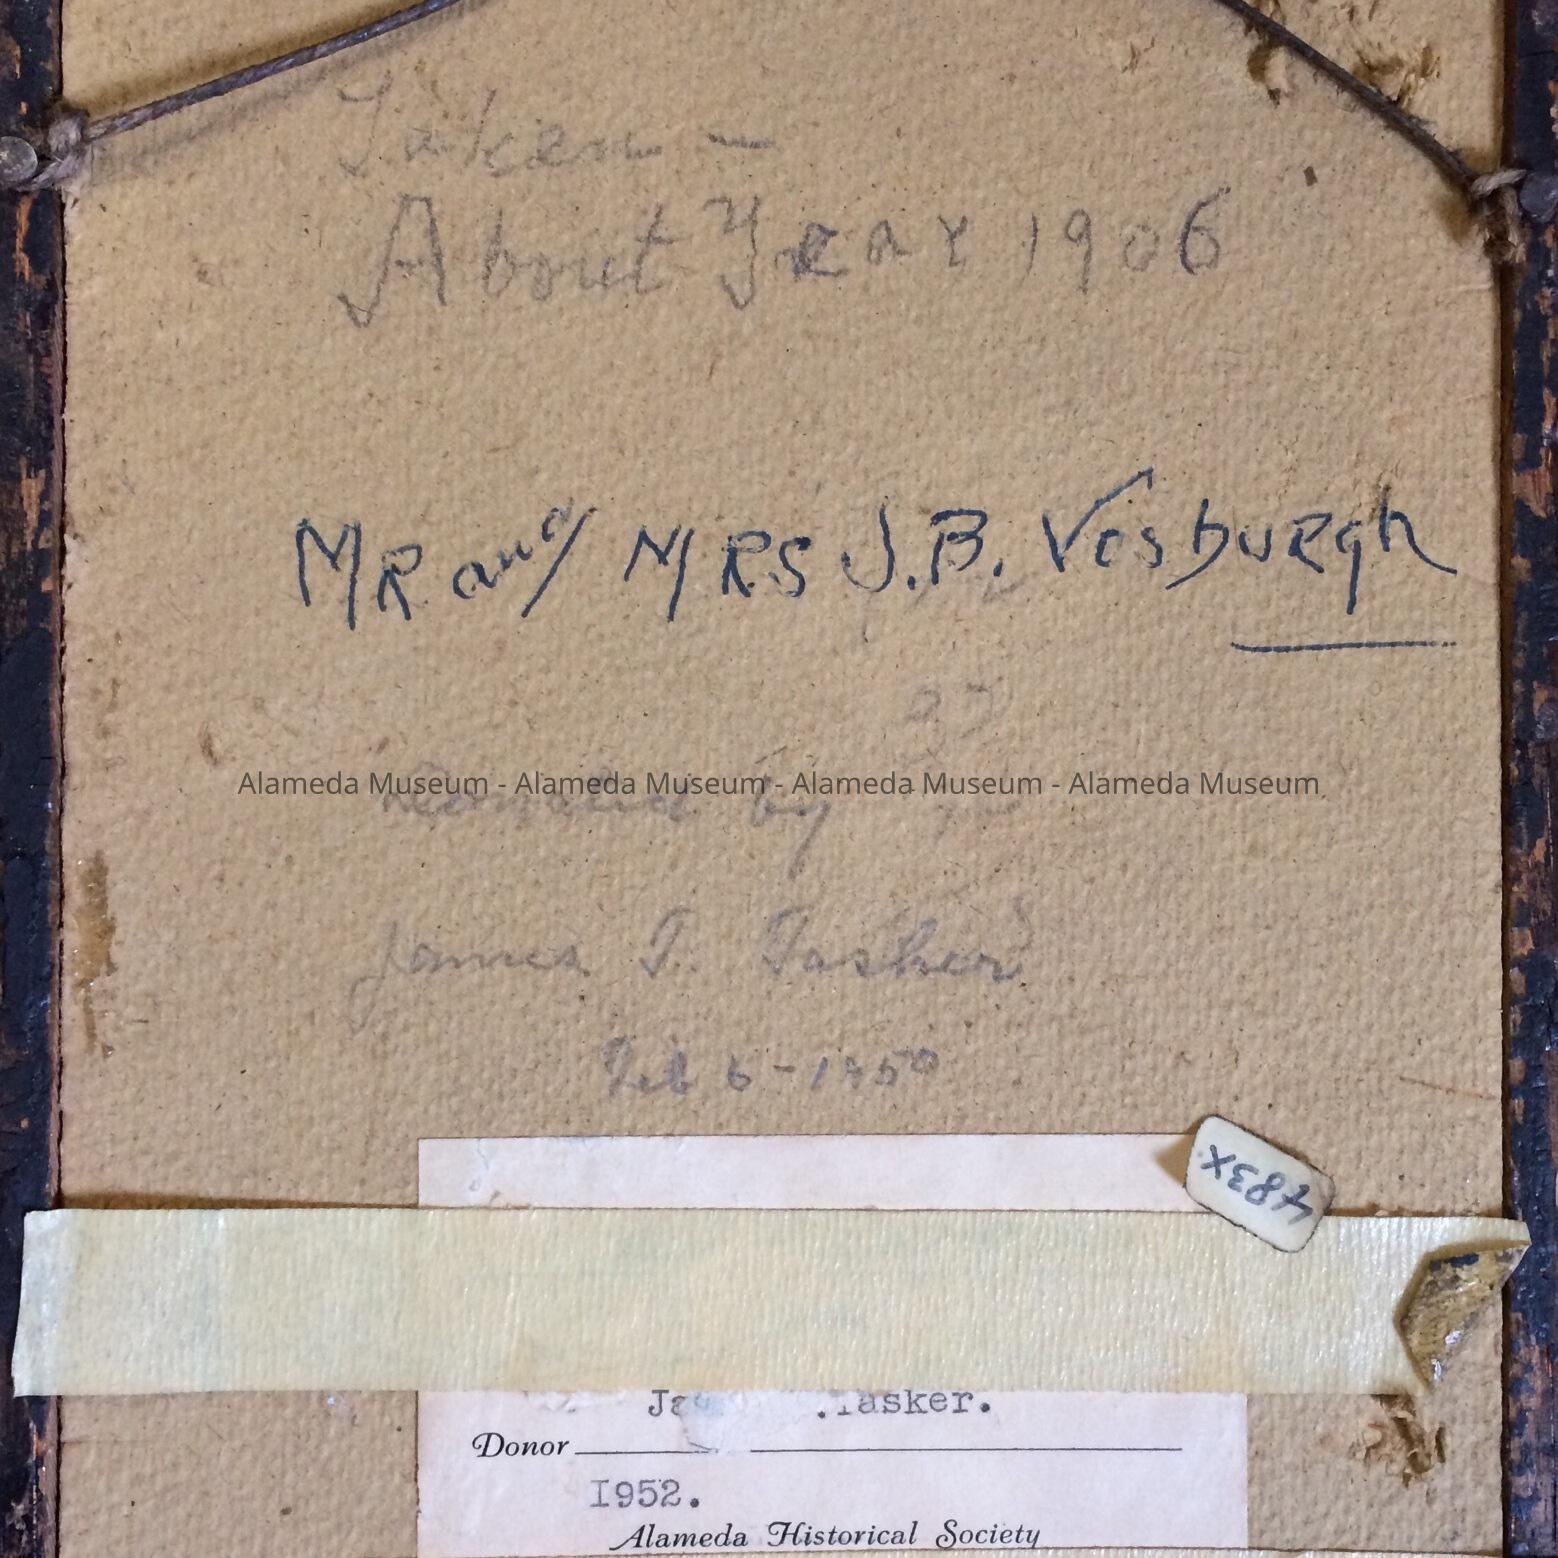 Taken —
About Year 1906
MR and MRS J.B. Vosburgh
27
Alameda Museum - Alameda Museum - Alameda Museum - Alameda Museum
Donated by
James T. Tasker
Feb 6 - 1950
483X
Tasker.
Donor
1952.
Alameda Historical Society